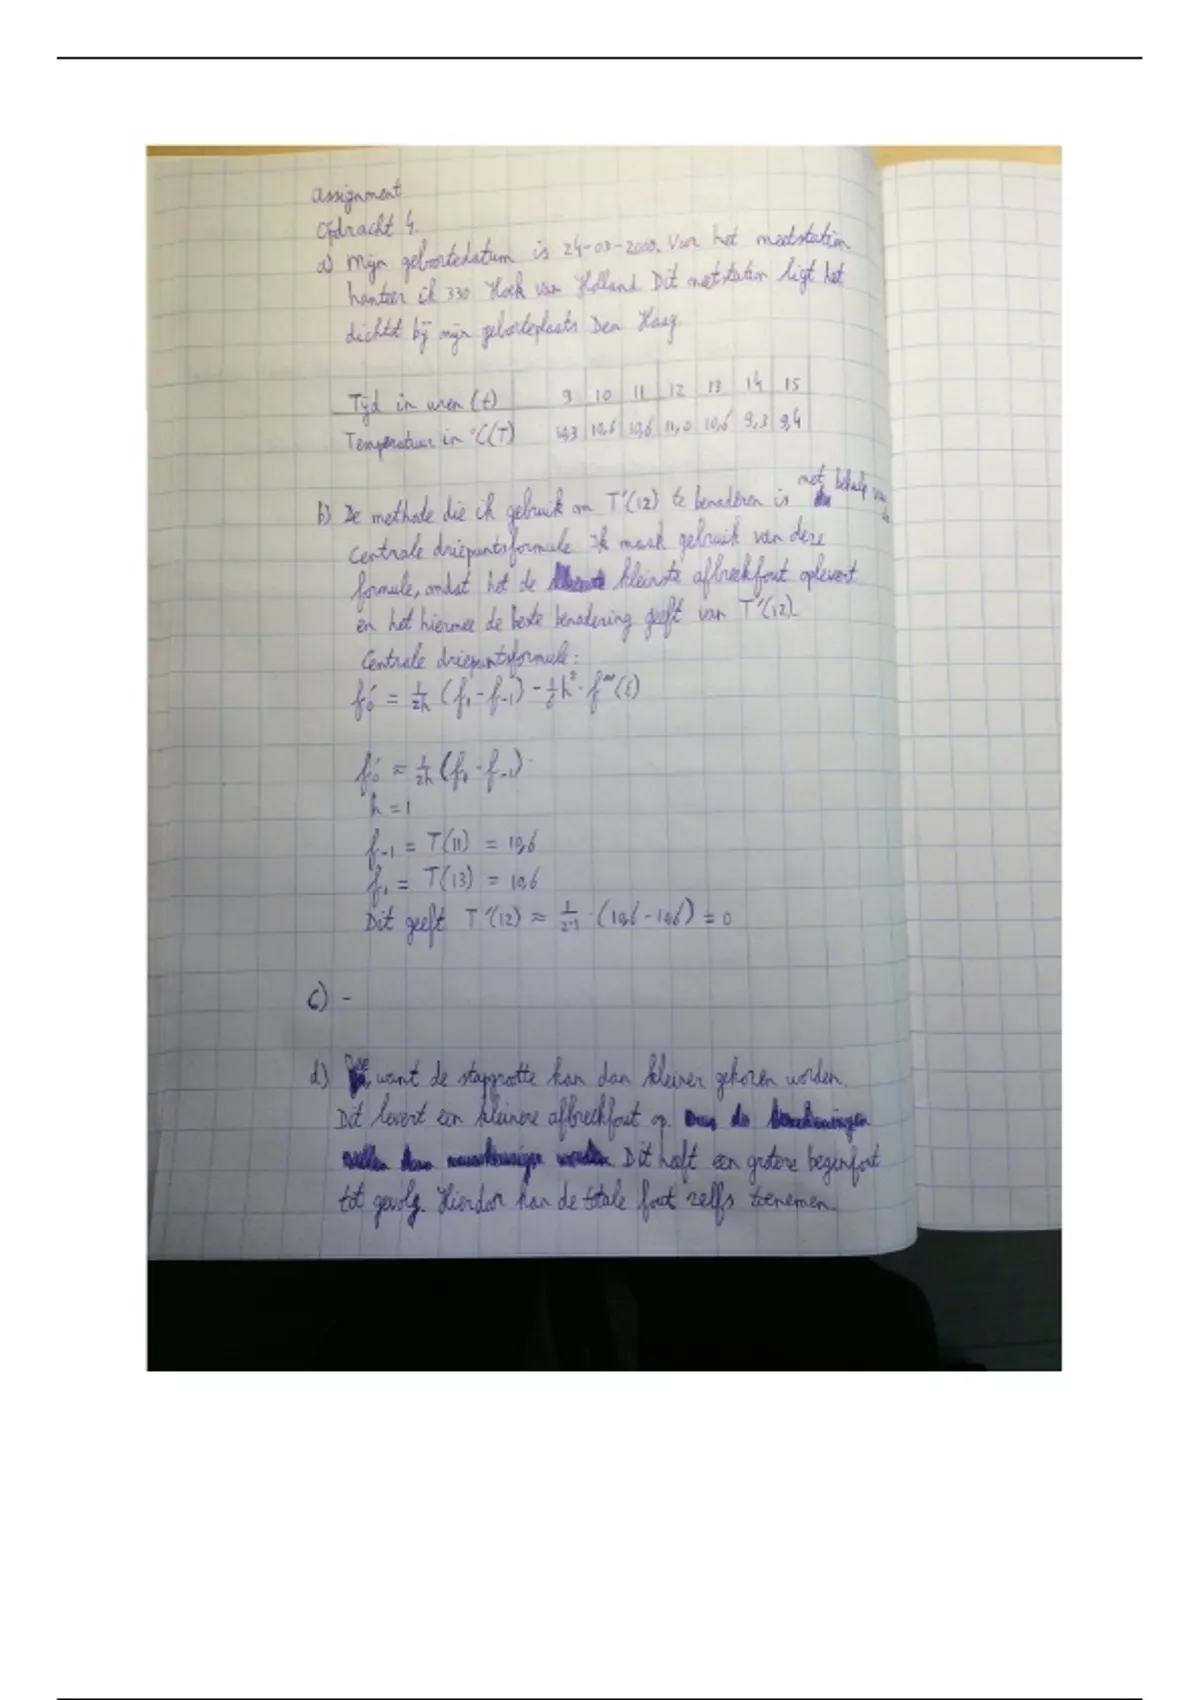 Assignment
Opdracht 4.
a) Mijn geboortedatum is 24-03-2000. Voor het meetstation
hanteer ik 330 Hoek van Holland. Dit meetstation ligt het
dichtst bij mijn geboorteplaats Den Haag.
Tijd in uren (t) 9 10 11 12 13 14 15
Temperatuur in °C(T) 10,6 10,6 11,0 10,6 9,3 9,4
b) De methode die ik gebruik om T'(12) te benaderen is met behulp van
Centrale driepuntsformule. Ik maak gebruik van deze
formule, omdat het de kleinste afbreekfout oplevert
en het hiermee de beste benadering geeft van T'(12).
Centrale driepuntsformule:
f'₀ = 1/2h (f₁ - f₋₁) - 1/6 h² · f'''(ξ)
f'₀ ≈ 1/2h (f₁ - f₋₁)
h = 1
f₋₁ = T(11) = 10,6
f₁ = T(13) = 10,6
Dit geeft T'(12) ≈ 1/2·1 · (10,6 - 10,6) = 0
c) -
d) want de stapgrootte kan dan kleiner gekozen worden.
Dit levert een kleinere afbreekfout op.
Dit heeft een grotere beginfout
tot gevolg. Hierdoor kan de totale fout zelfs toenemen.